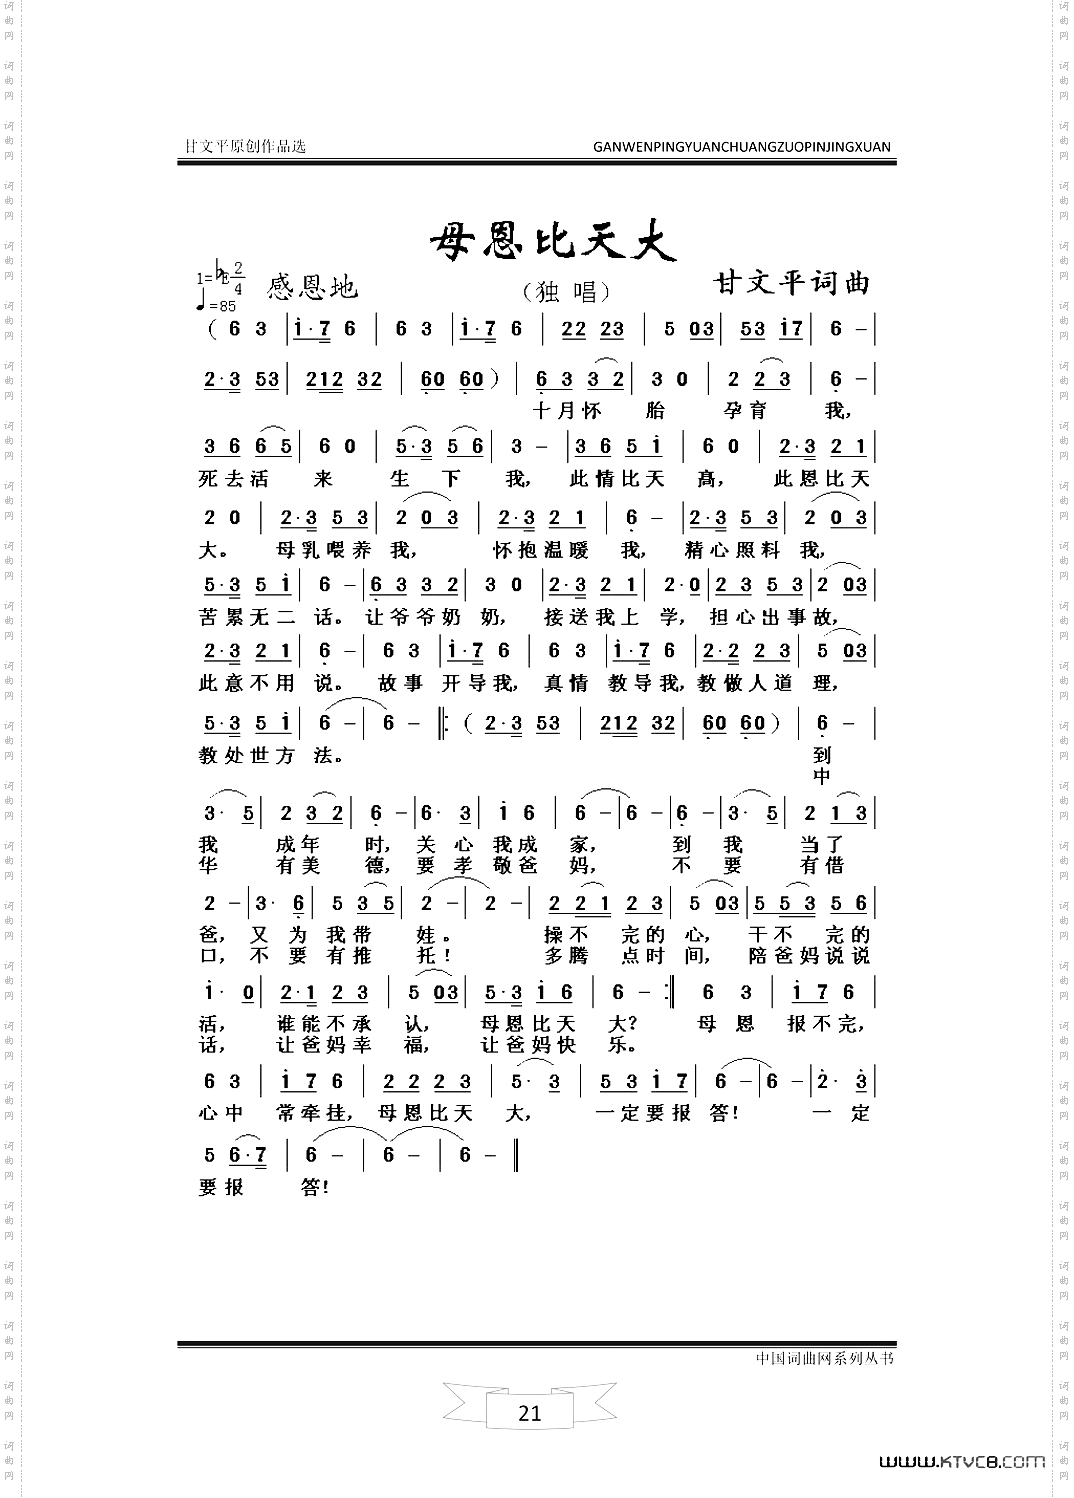 甘文平原创作品选 GANWENPINGYUANCHUANGZUOPINJINGXUAN
母恩比天大
1=♭E 2/4 感恩地 （独 唱） 甘文平词曲
♩=85
（6 3 | i·7 6 | 6 3 | i·7 6 | 22 23 | 5 03 | 53 i7 | 6 – |
2·3 53 | 212 32 | 60 60 ）| 6 3 3 2 | 3 0 | 2 2 3 | 6 – |
十月怀 胎 孕育 我，
3 6 6 5 | 6 0 | 5·3 5 6 | 3 – | 3 6 5 i | 6 0 | 2·3 2 1 |
死去活 来 生 下 我， 此情比天 高， 此恩比天
2 0 | 2·3 5 3 | 2 0 3 | 2·3 2 1 | 6 – | 2·3 5 3 | 2 0 3 |
大。 母乳喂养 我， 怀抱温暖 我， 精心照料 我，
5·3 5 i | 6 – | 6 3 3 2 | 3 0 | 2·3 2 1 | 2·0 | 2 3 5 3 | 2 03 |
苦累无二 话。 让爷爷奶 奶， 接送我上 学， 担心出事故，
2·3 2 1 | 6 – | 6 3 | i·7 6 | 6 3 | i·7 6 | 2·2 2 3 | 5 03 |
此意不用 说。 故事 开导我， 真情 教导我，教做人道 理，
5·3 5 i | 6 – | 6 – ‖:（ 2·3 53 | 212 32 | 60 60 ）| 6 – |
教处世方 法。 到
中
3· 5 | 2 3 2 | 6 – | 6· 3 | i 6 | 6 – | 6 – | 6 – | 3· 5 | 2 1 3 |
我 成年 时，关 心 我成 家， 到 我 当了
华 有美 德，要 孝 敬爸 妈， 不 要 有借
2 – | 3· 6 | 5 3 5 | 2 – | 2 – | 2 2 1 2 3 | 5 03 | 5 5 3 5 6 |
爸， 又 为 我带 娃。 操不 完的 心， 干不 完的
口， 不 要 有推 托！ 多腾 点时 间， 陪爸妈说说
i· 0 | 2·1 2 3 | 5 03 | 5·3 i 6 | 6 – :‖ 6 3 | i 7 6 |
活， 谁能不承 认， 母恩比天 大？ 母 恩 报不完，
话， 让爸妈幸 福， 让爸妈快 乐。
6 3 | i 7 6 | 2 2 2 3 | 5· 3 | 5 3 i 7 | 6 – | 6 – | 2· 3 |
心中 常牵挂， 母恩比天 大， 一定要报 答！ 一 定
5 6·7 | 6 – | 6 – | 6 – ‖
要报 答！
中国词曲网系列丛书
21
www.KTVC8.com
词曲网